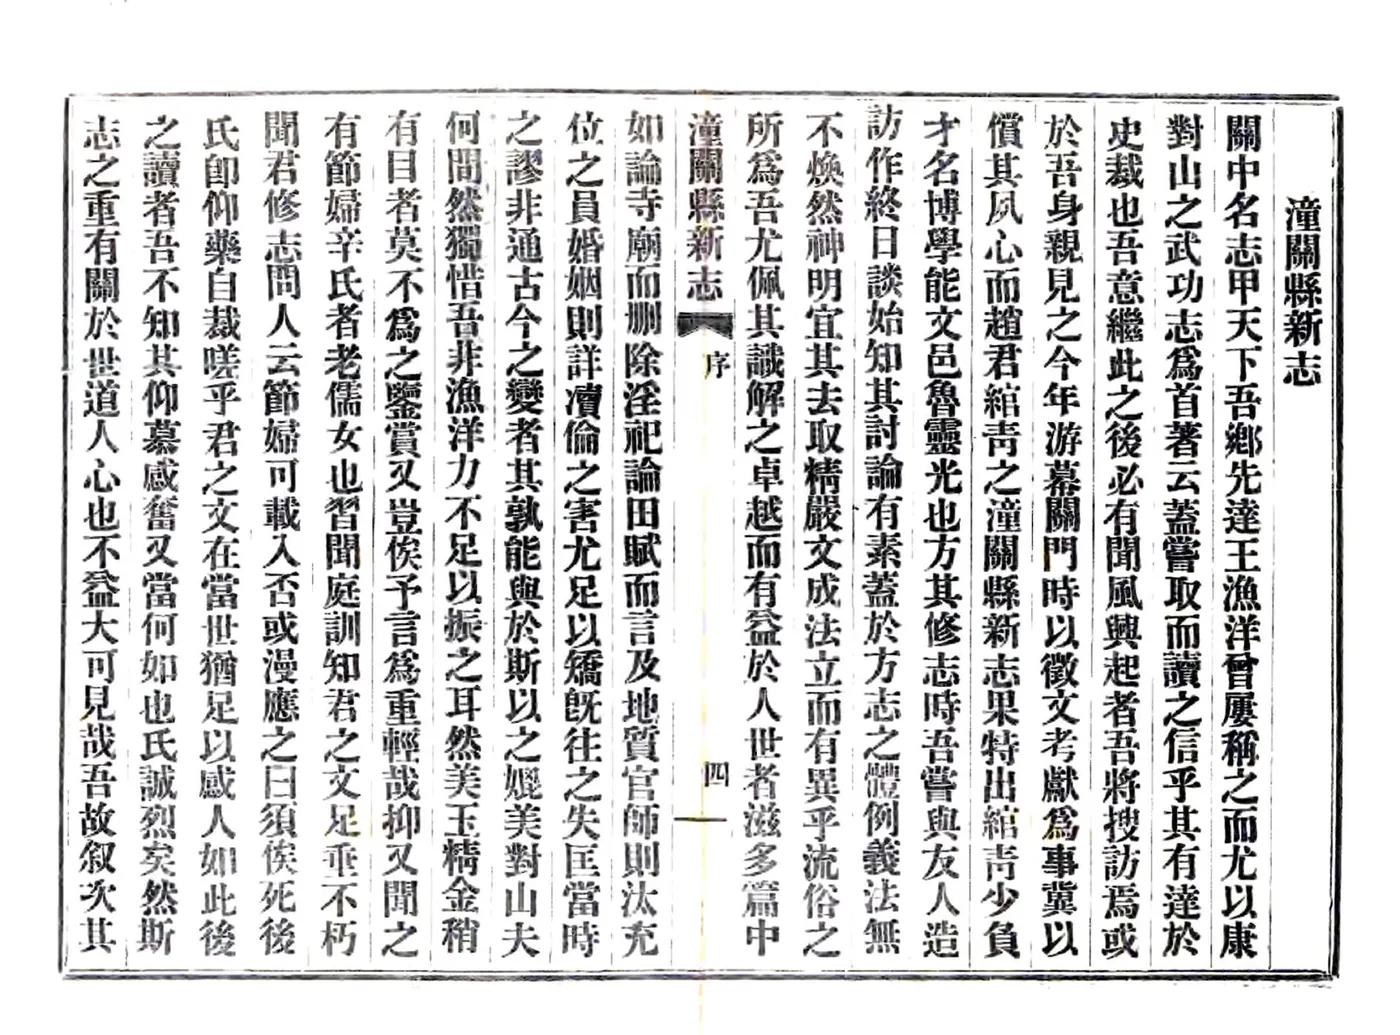 潼關縣新志
關中名志甲天下吾鄉先達王漁洋曾屢稱之而尤以康
對山之武功志爲首著云蓋嘗取而讀之信乎其有達於
史裁也吾意繼此之後必有聞風興起者吾將搜訪焉或
於吾身親見之今年游幕關門時以徵文考獻爲事冀以
償其夙心而趙君綰靑之潼關縣新志果特出綰靑少負
才名博學能文邑魯靈光也方其修志時吾嘗與友人造
訪作終日談始知其討論有素蓋於方志之體例義法無
不煥然神明宜其去取精嚴文成法立而有異乎流俗之
所爲吾尤佩其識解之卓越而有益於人世者滋多篇中
潼關縣新志
序
四
如論寺廟而删除淫祀論田賦而言及地質官師則汰充
位之員婚姻則詳凟倫之害尤足以矯旣往之失匡當時
之謬非通古今之變者其孰能與於斯以之媲美對山夫
何間然獨惜吾非漁洋力不足以振之耳然美玉精金稍
有目者莫不爲之鑒賞又豈俟予言爲重輕哉抑又聞之
有節婦辛氏者老儒女也習聞庭訓知君之文足垂不朽
聞君修志問人云節婦可載入否或漫應之曰須俟死後
氏卽仰藥自裁嗟乎君之文在當世猶足以感人如此後
之讀者吾不知其仰慕感奮又當何如也氏誠烈矣然斯
志之重有關於世道人心也不益大可見哉吾故叙次其